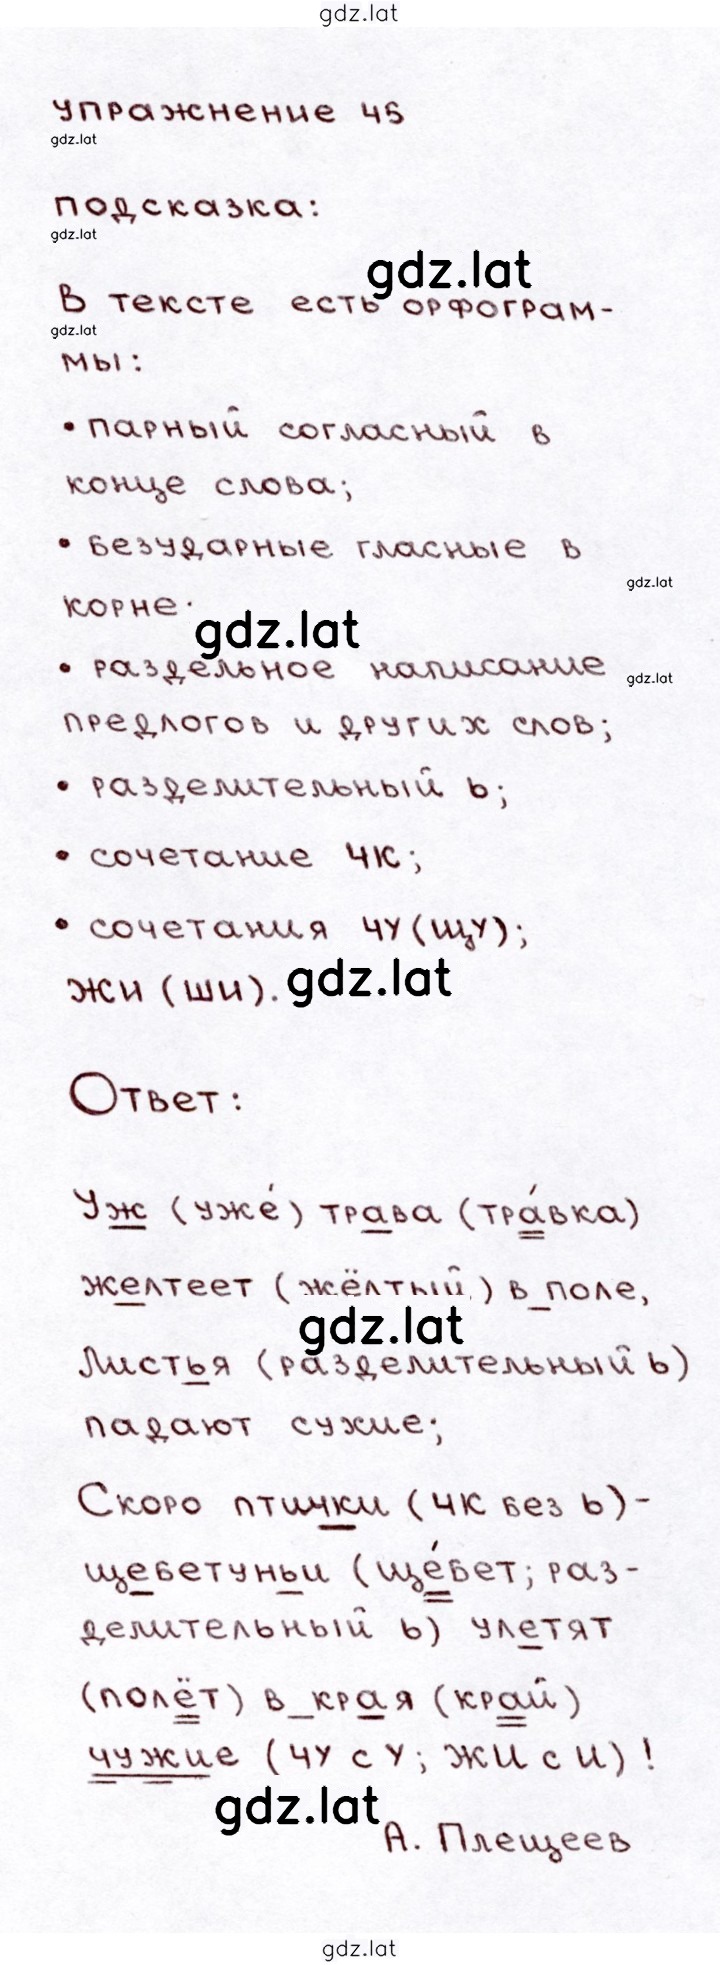 gdz.lat
упражнение 45
gdz.lat
подсказка:
gdz.lat
gdz.lat
В тексте есть орфограм-
gdz.lat
мы:
• парный согласный в
конце слова;
• безударные гласные в
gdz.lat
корне.
gdz.lat
• раздельное написание
gdz.lat
предлогов и других слов;
• разделительный ь;
• сочетание чк;
• сочетания чу (щу);
жи (ши).
gdz.lat
Ответ:
Уж (уже́) трава (тра́вка)
желтеет (жёлтый) в_поле,
gdz.lat
Листья (разделительный ь)
падают сухие;
Скоро птички (чк без ь)-
щебетуньи (ще́бет; раз-
делительный ь) улетят
(полёт) в_края (край)
чужие (чу с у; жи с и)!
gdz.lat
А. Плещеев
gdz.lat